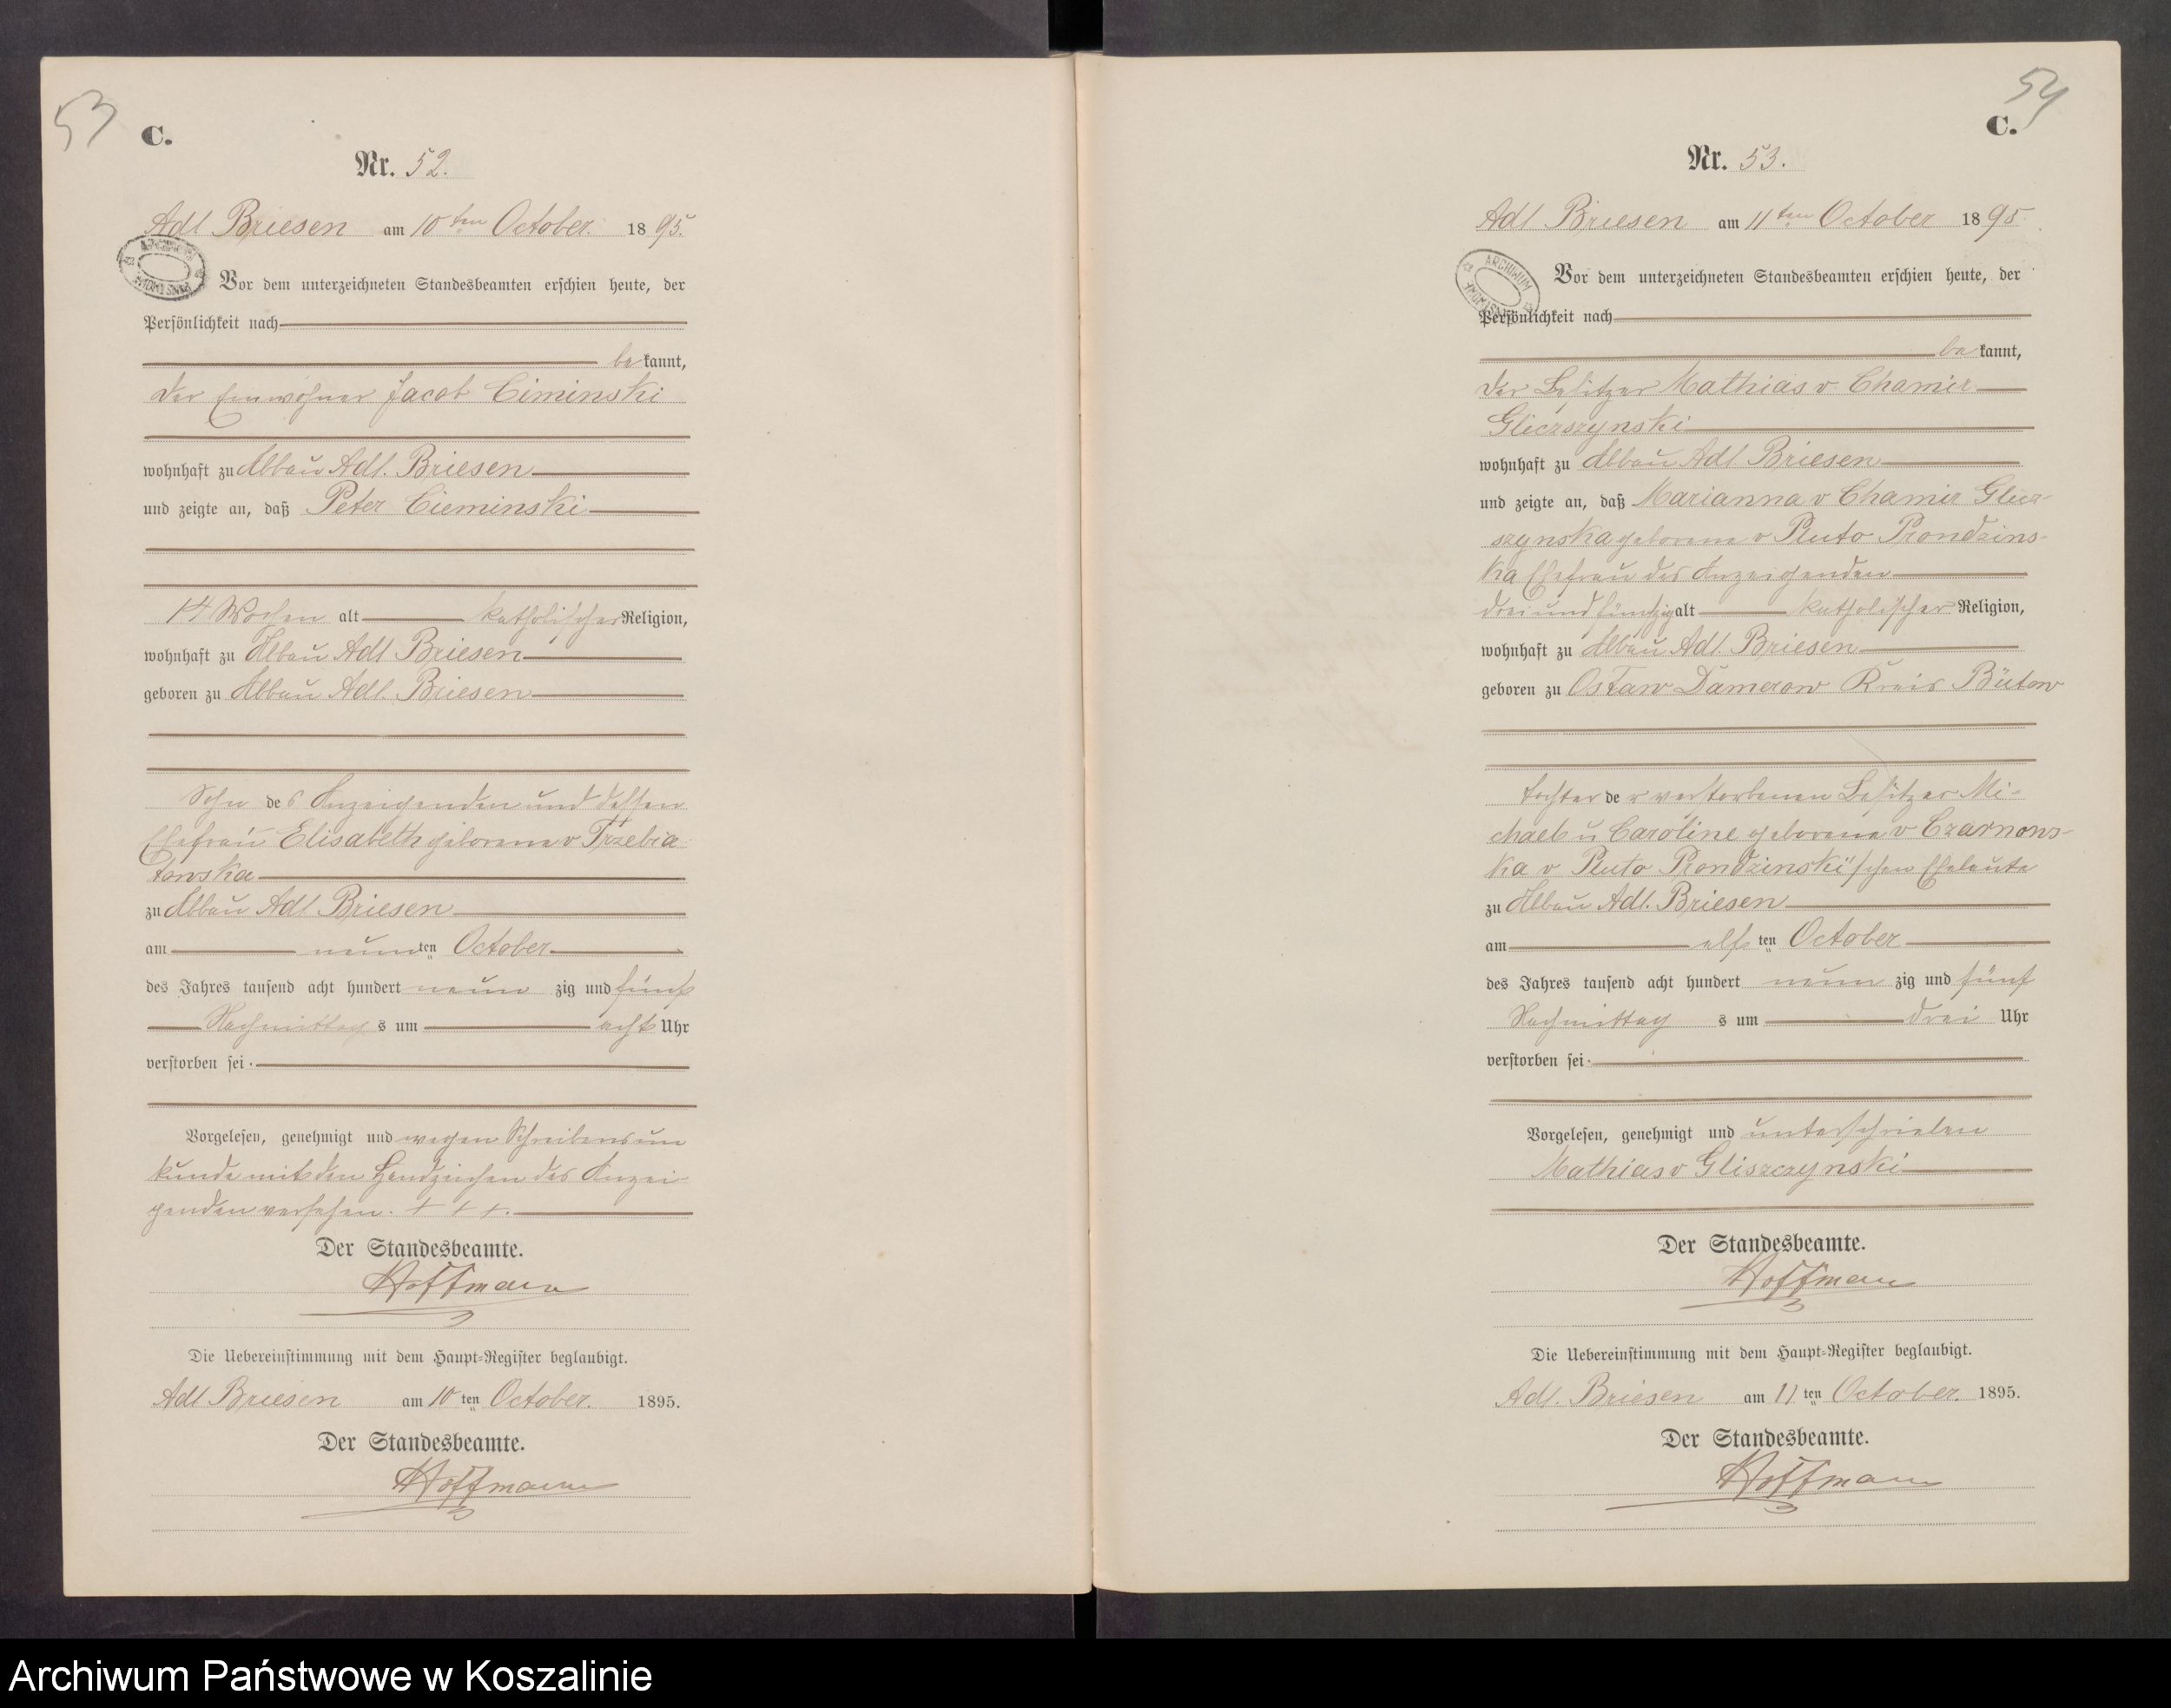 53
C.
Nr. 52.
Adl Briesen am 10ten October 1895.
Vor dem unterzeichneten Standesbeamten erschien heute, der
Persönlichkeit nach
be kannt,
der Einwohner Jacob Ciminski
wohnhaft zu Abbau Adl. Briesen
und zeigte an, daß Peter Cieminski
14 Wochen alt katholischer Religion,
wohnhaft zu Abbau Adl Briesen
geboren zu Abbau Adl. Briesen
Sohn des Anzeigenden und dessen
Ehefrau Elisabeth geborene v Trzebia
towska
zu Abbau Adl Briesen
am neunten October
des Jahres tausend acht hundert neun zig und fünf
Nachmittags um acht Uhr
verstorben sei.
Vorgelesen, genehmigt und wegen Schreibensun
kunde mit den Handzeichen des Anzei-
genden versehen. + + +.
Der Standesbeamte.
Hoffmann
Die Uebereinstimmung mit dem Haupt-Register beglaubigt.
Adl Briesen am 10ten October. 1895.
Der Standesbeamte.
Hoffmann
54
C.
Nr. 53.
Adl Briesen am 11ten October 1895
ARCHIWUM
Vor dem unterzeichneten Standesbeamten erschien heute, der
Persönlichkeit nach
be kannt,
der Besitzer Mathias v. Chamir
Gliczszynski
wohnhaft zu Abbau Adl Briesen
und zeigte an, daß Marianna v Chamir Glicz-
szynska geborene v Pluto Prondzins-
ka Ehefrau des Anzeigenden
drei und fünfzig alt katholischer Religion,
wohnhaft zu Abbau Adl. Briesen
geboren zu Oslaw Damerow Kreis Bütow
Tochter der verstorbenen Besitzer Mi-
chael u Caroline geborene v Czarnows-
ka v Pluto Prondzinski'schen Eheleute
zu Abbau Adl. Briesen
am elften October
des Jahres tausend acht hundert neun zig und fünf
Nachmittags um drei Uhr
verstorben sei.
Vorgelesen, genehmigt und unterschrieben
Mathias v Gliszczynski
Der Standesbeamte.
Hoffmann
Die Uebereinstimmung mit dem Haupt-Register beglaubigt.
Adl. Briesen am 11ten October. 1895.
Der Standesbeamte.
Hoffmann
Archiwum Państwowe w Koszalinie